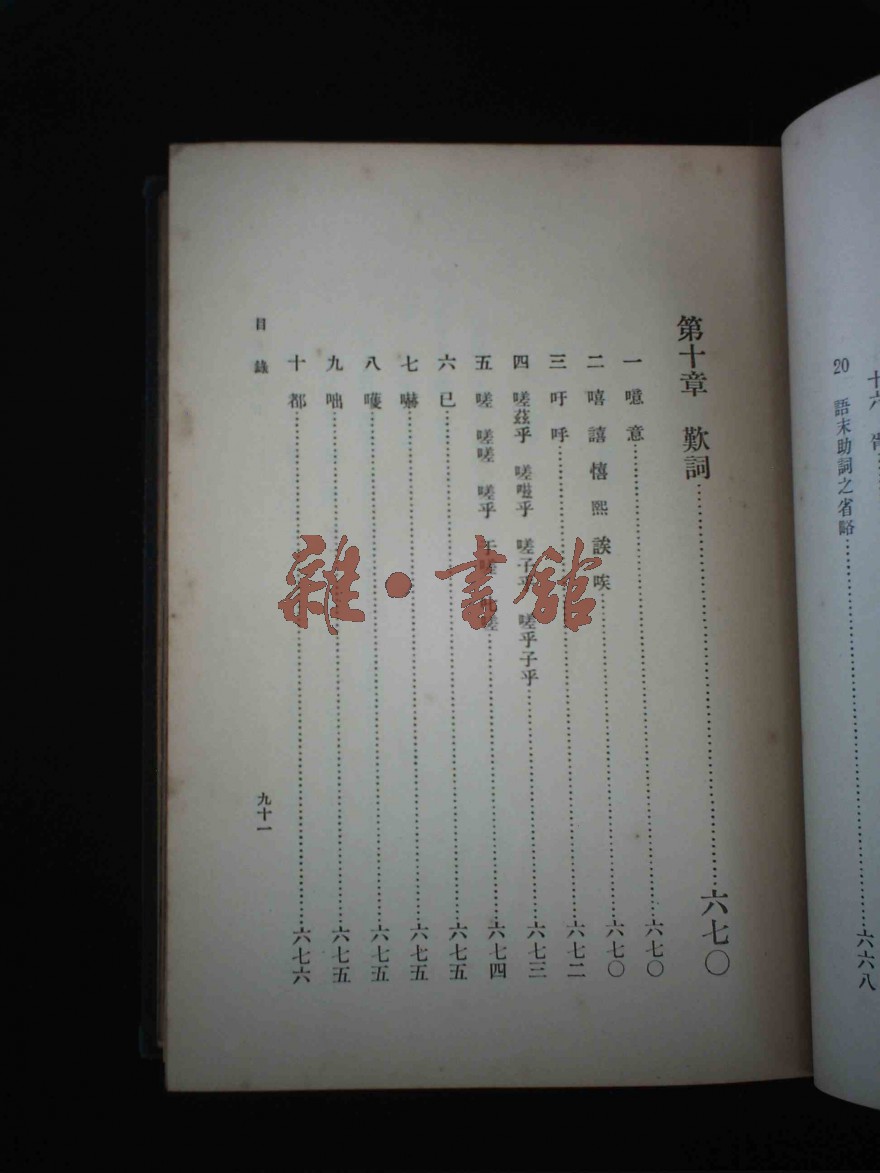 20 語末助詞之省略……六六八
第十章 歎詞……六七〇
一 噫 意……六七〇
二 嘻 譆 僖 熙 誒 唉……六七〇
三 吁 呼……六七二
四 嗟茲乎 嗟嗞乎 嗟子乎 嗟乎子乎……六七三
五 嗟 嗟嗟 嗟乎 于嗟 嗟……六七四
六 已……六七五
七 嚇……六七五
八 嚄……六七五
九 咄……六七五
十 都……六七六
目錄
九十一
雜·書館